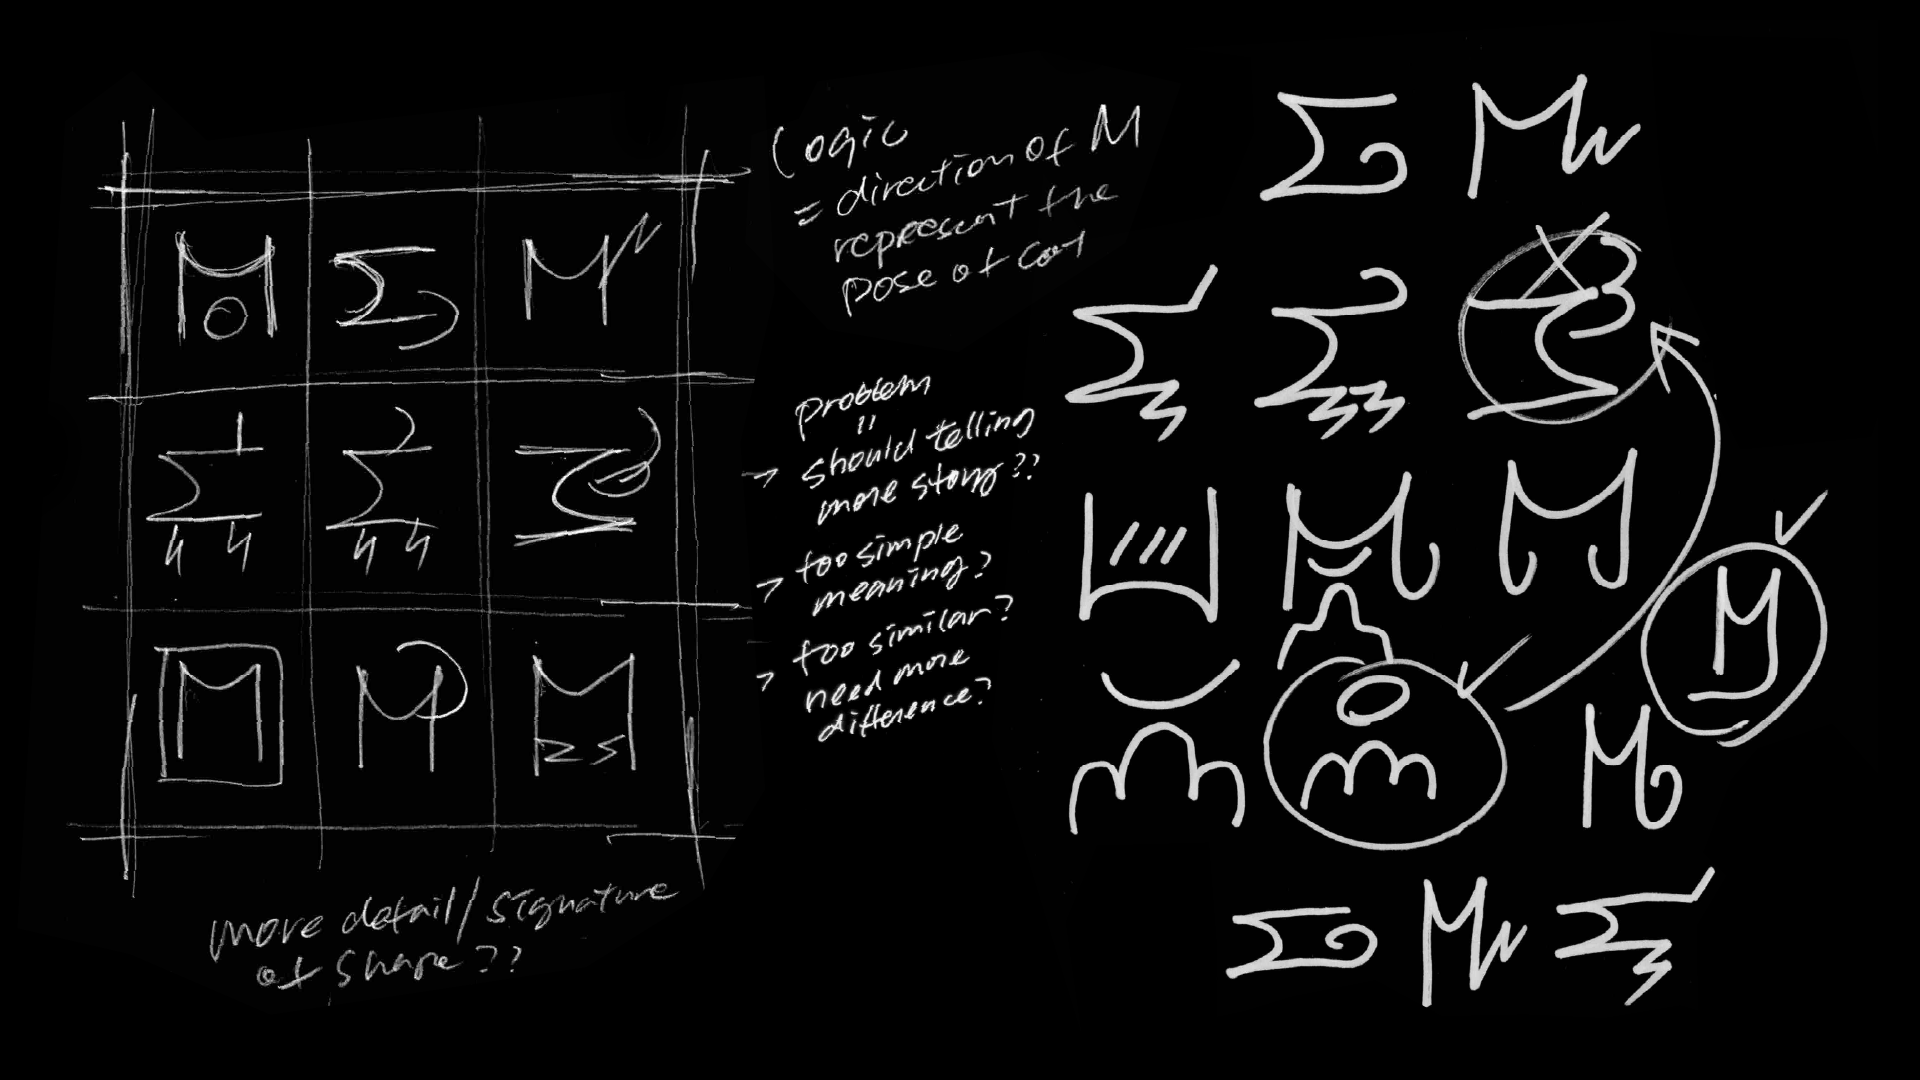 Logic
= direction of M
represent the
pose of cat
problem
"
→ should telling
more story??
→ too simple
meaning?
→ too similar?
need more
difference?
more detail/signature
of shape??